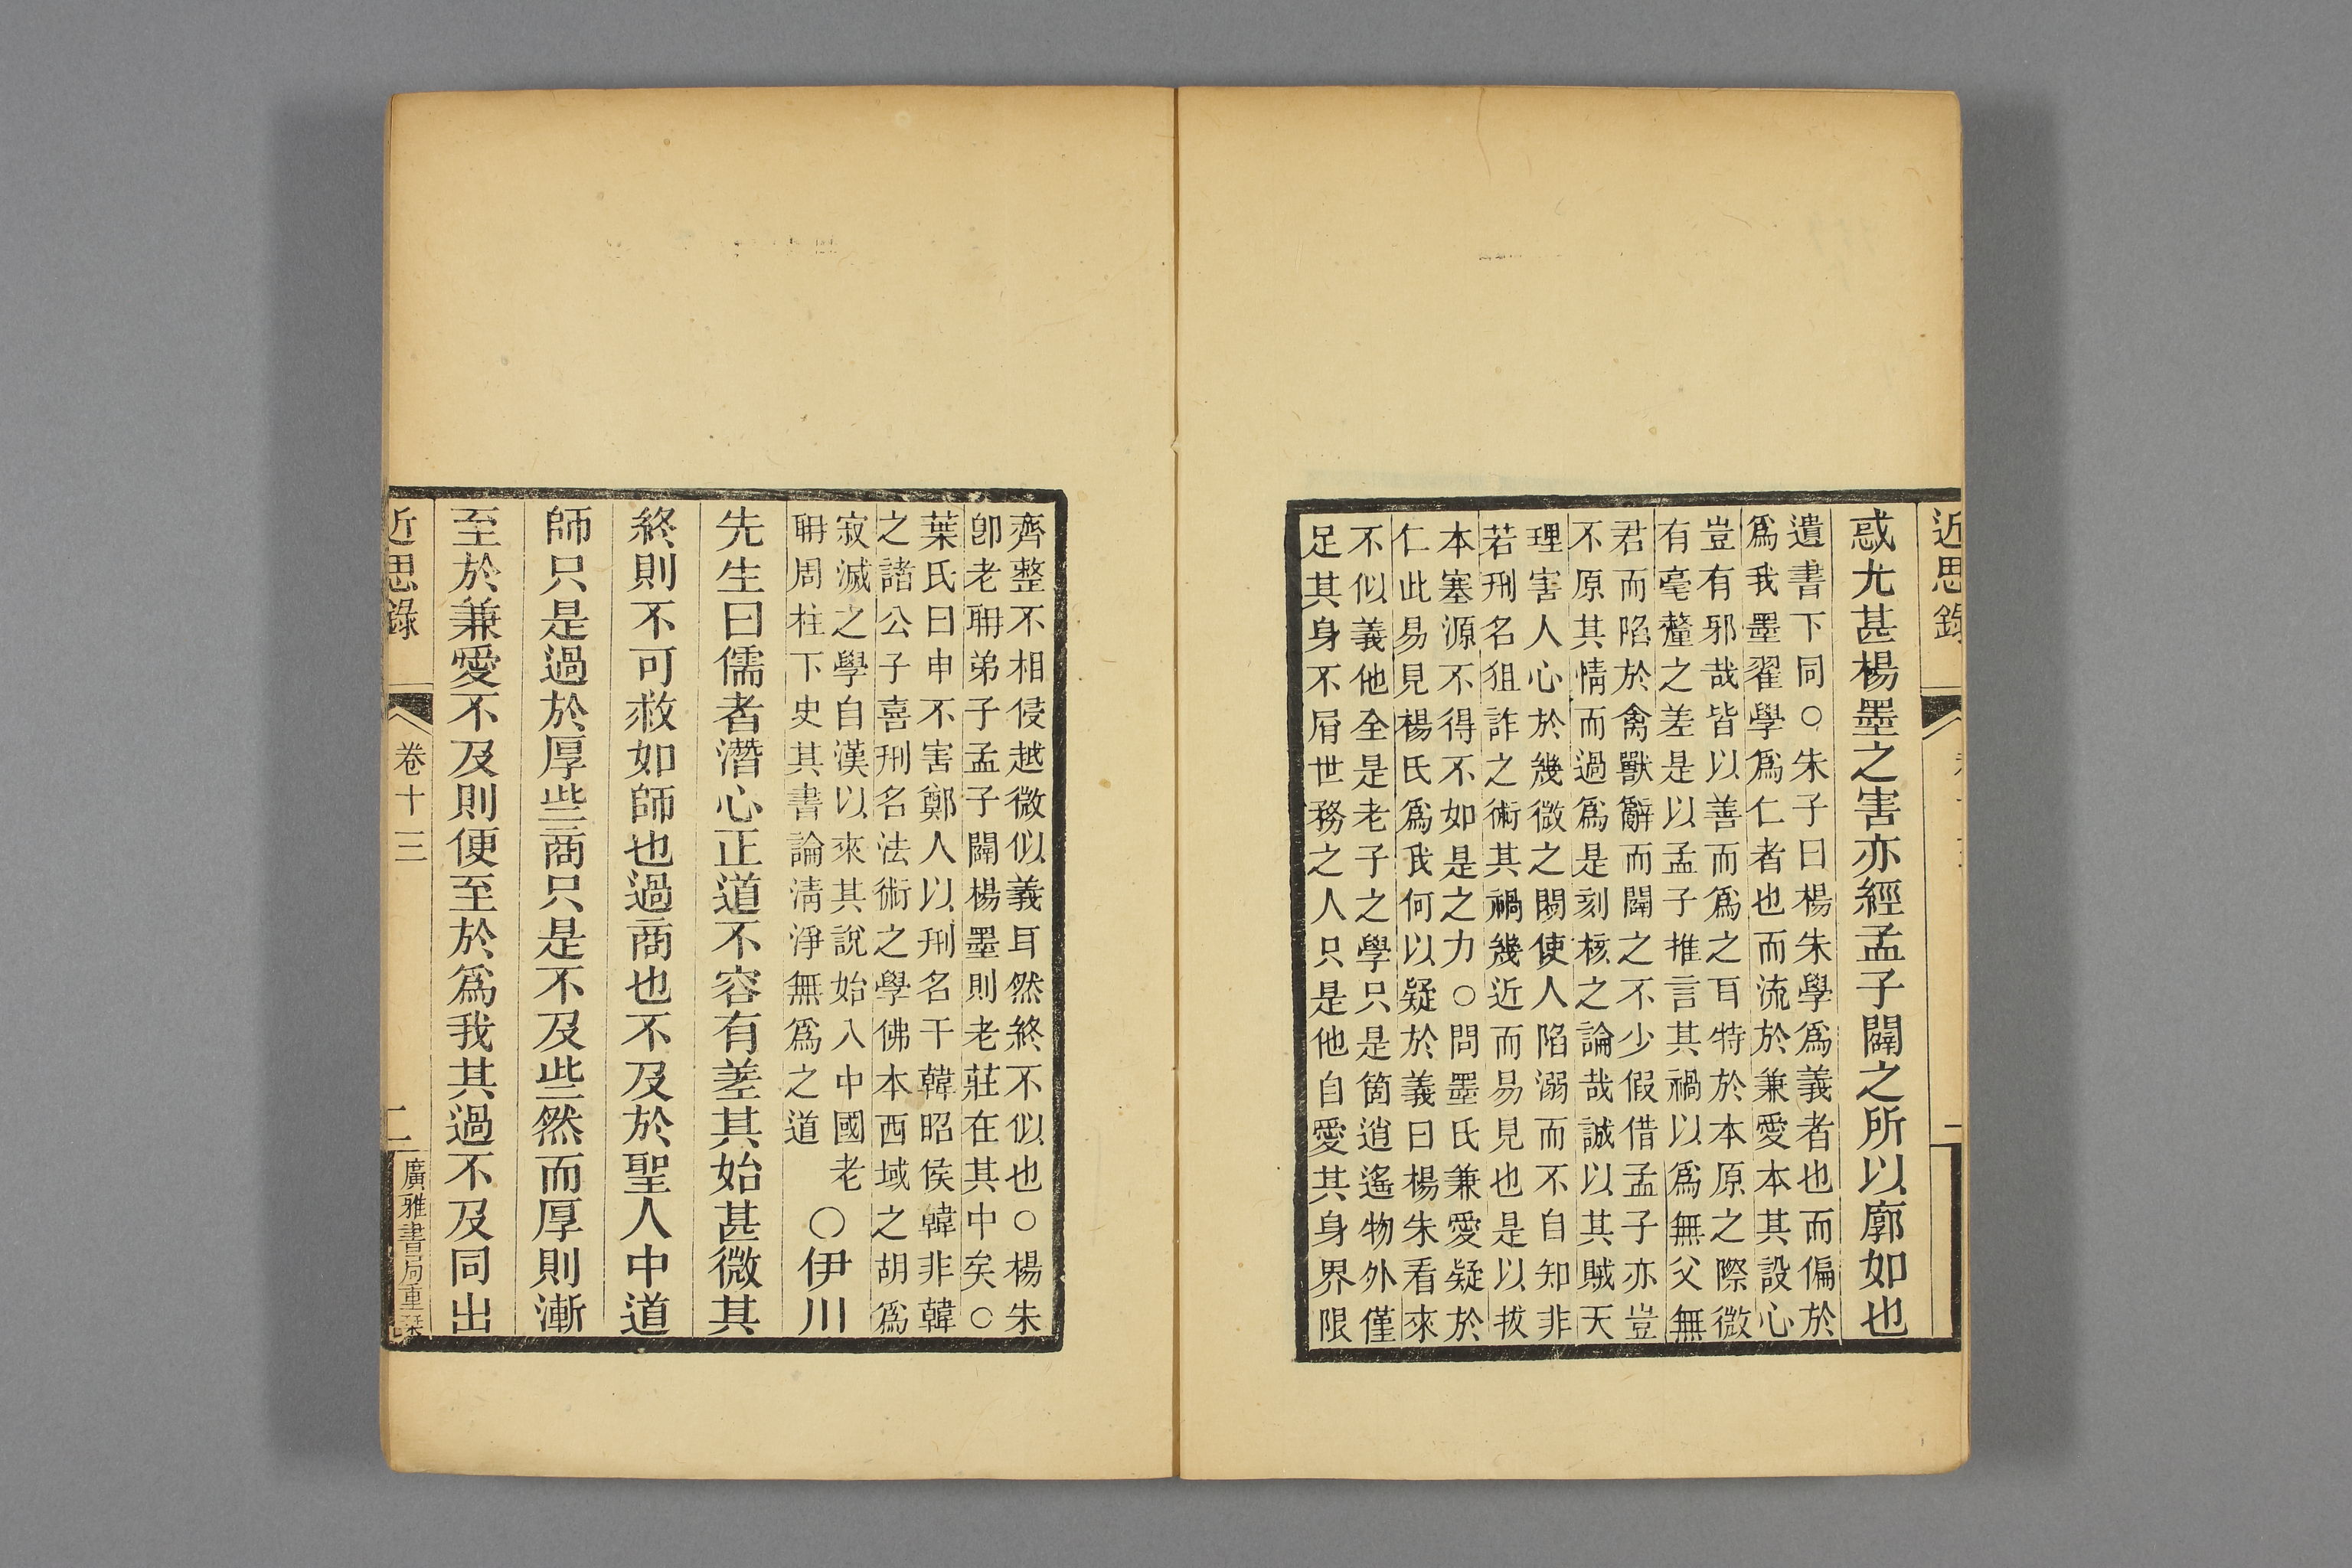 近思錄
惑尤甚楊墨之害亦經孟子闢之所以廓如也
遺書下同○朱子曰楊朱學爲義者也而偏於
爲我墨翟學爲仁者也而流於兼愛本其設心
豈有邪哉皆以善而爲之耳特於本原之際微
有毫釐之差是以孟子推言其禍以爲無父無
君而陷於禽獸辭而闢之不少假借孟子亦豈
不原其情而過爲是刻核之論哉誠以其賊天
理害人心於幾微之閒使人陷溺而不自知非
若刑名狙詐之術其禍幾近而易見也是以拔
本塞源不得不如是之力○問墨氏兼愛疑於
仁此易見楊氏爲我何以疑於義曰楊朱看來
不似義他全是老子之學只是箇逍遙物外僅
足其身不屑世務之人只是他自愛其身界限
齊整不相侵越微似義耳然終不似也○楊朱
卽老聃弟子孟子闢楊墨則老莊在其中矣○
葉氏曰申不害鄭人以刑名干韓昭侯韓非韓
之諸公子喜刑名法術之學佛本西域之胡爲
寂滅之學自漢以來其說始入中國老
聃周柱下史其書論淸淨無爲之道
○伊川
先生曰儒者潛心正道不容有差其始甚微其
終則不可救如師也過商也不及於聖人中道
師只是過於厚些商只是不及些然而厚則漸
至於兼愛不及則便至於爲我其過不及同出
近思錄
卷十三
二
廣雅書局重栞